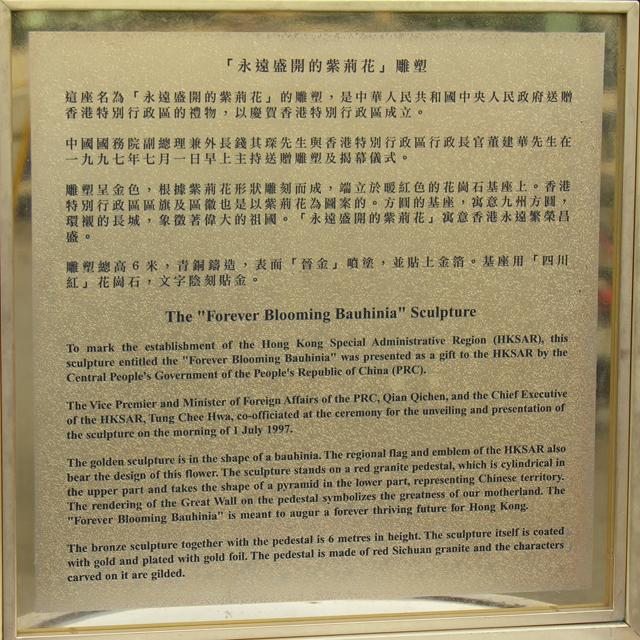 「永遠盛開的紫荊花」雕塑
這座名為「永遠盛開的紫荊花」的雕塑，是中華人民共和國中央人民政府送贈
香港特別行政區的禮物，以慶賀香港特別行政區成立。
中國國務院副總理兼外長錢其琛先生與香港特別行政區行政長官董建華先生在
一九九七年七月一日早上主持送贈雕塑及揭幕儀式。
雕塑呈金色，根據紫荊花形狀雕刻而成，端立於暖紅色的花崗石基座上。香港
特別行政區區旗及區徽也是以紫荊花為圖案的。方圓的基座，寓意九州方圓，
環襯的長城，象徵著偉大的祖國。「永遠盛開的紫荊花」寓意香港永遠繁榮昌
盛。
雕塑總高6米，青銅鑄造，表面「晉金」噴塗，並貼上金箔。基座用「四川
紅」花崗石，文字陰刻貼金。
The "Forever Blooming Bauhinia" Sculpture
To mark the establishment of the Hong Kong Special Administrative Region (HKSAR), this
sculpture entitled the "Forever Blooming Bauhinia" was presented as a gift to the HKSAR by the
Central People's Government of the People's Republic of China (PRC).
The Vice Premier and Minister of Foreign Affairs of the PRC, Qian Qichen, and the Chief Executive
of the HKSAR, Tung Chee Hwa, co-officiated at the ceremony for the unveiling and presentation of
the sculpture on the morning of 1 July 1997.
The golden sculpture is in the shape of a bauhinia. The regional flag and emblem of the HKSAR also
bear the design of this flower. The sculpture stands on a red granite pedestal, which is cylindrical in
the upper part and takes the shape of a pyramid in the lower part, representing Chinese territory.
The rendering of the Great Wall on the pedestal symbolizes the greatness of our motherland. The
"Forever Blooming Bauhinia" is meant to augur a forever thriving future for Hong Kong.
The bronze sculpture together with the pedestal is 6 metres in height. The sculpture itself is coated
with gold and plated with gold foil. The pedestal is made of red Sichuan granite and the characters
carved on it are gilded.